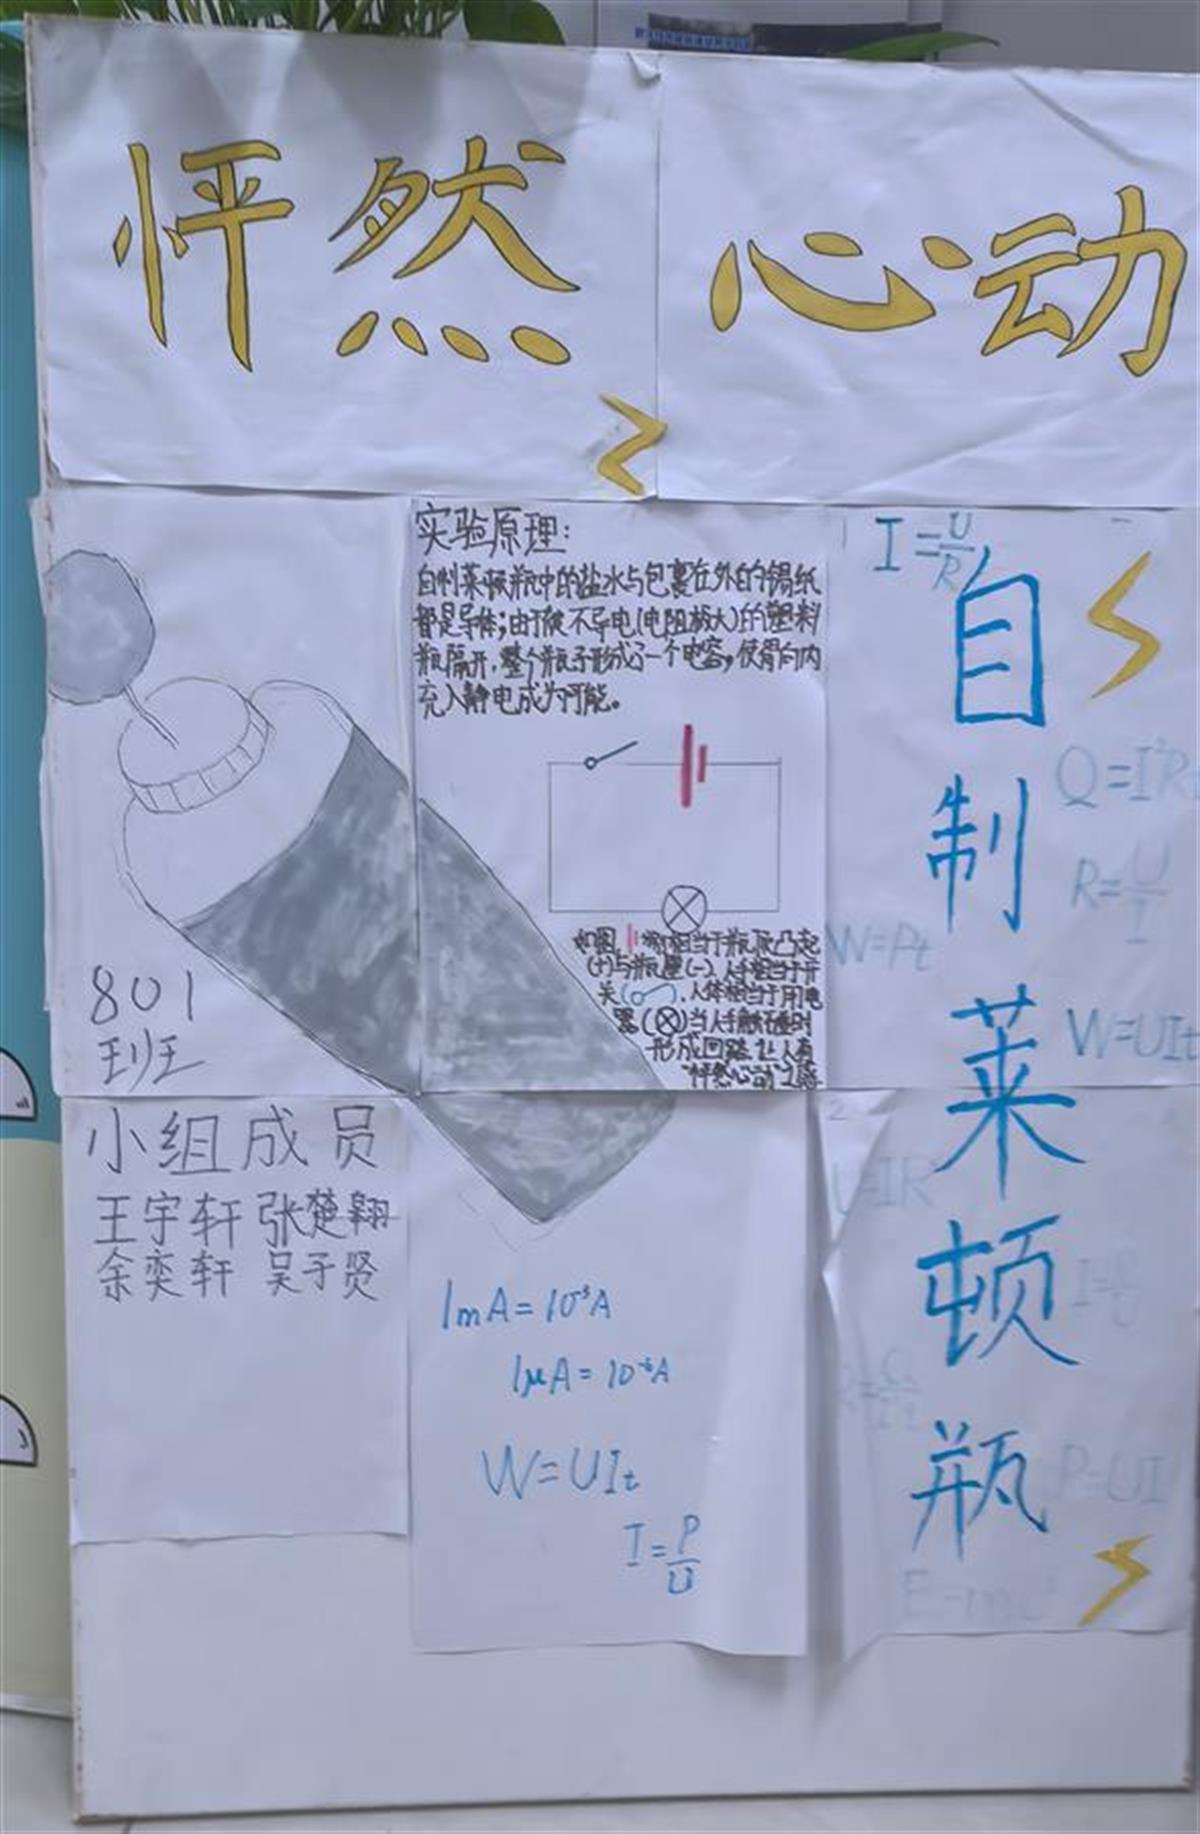 怦然心动
实验原理：
自制莱顿瓶中的盐水与包裹在外的锡纸
都是导体；由于使不导电(电阻极大)的塑料
瓶隔开，整个瓶子形成了一个电容，使得向内
充入静电成为可能。
如图，相当于瓶顶凸起
(+)与瓶壁(-)，人手相当于开
关()，人体相当于用电
器()当人手触碰时
形成回路，让人有
“怦然心动”之感
801
班
小组成员
王宇轩 张楚翱
余奕轩 吴于贤
1mA=10⁻³A
1μA=10⁻⁶A
W=UIt
I=P/U
自制莱顿瓶
I=U/R
Q=I²R
R=U/I
W=Pt
W=UIt
U=IR
P=UI
E=mc²